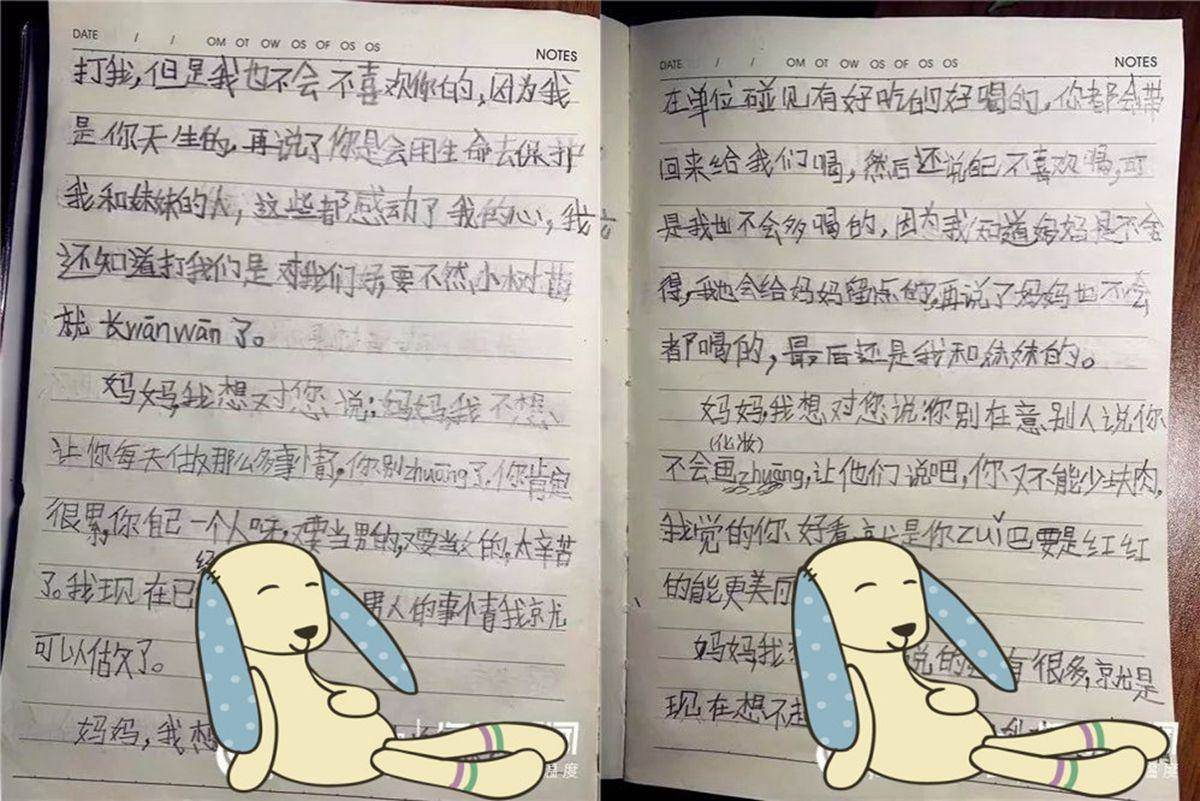 DATE / / OM OT OW OS OF OS OS
NOTES
打我,但是我也不会不喜欢你的,因为我
是你天生的,再说了你是会用生命去保护
我和妹妹的人,这些都感动了我的心,我
还知道打我们是对我们好,要不然,小树苗
就长wānwān了。
妈妈,我想对您说:妈妈,我不想
让你每天做那么多事情,你别zhuāng了,你肯定
很累,你自己一个人呀,又要当男的,又要当女的,太辛苦
了。我现在已经
男人的事情我就
可以做了。
妈妈,我想
DATE / / OM OT OW OS OF OS OS
NOTES
在单位碰见有好吃的好喝的,你都会带
回来给我们喝,然后还说自己不喜欢喝,可
是我也不会多喝的,因为我知道妈妈是不舍
得,我也会给妈妈留点的,再说了妈妈也不会
都喝的,最后还是我和妹妹的。
妈妈,我想对您说你别在意别人说你
(化妆)
不会画zhuāng,让他们说吧,你又不能少块肉,
我觉的你好看,就是你zuǐ巴要是红红
的能更美
妈妈,我想
说的
有很多,就是
现在想不起
温度